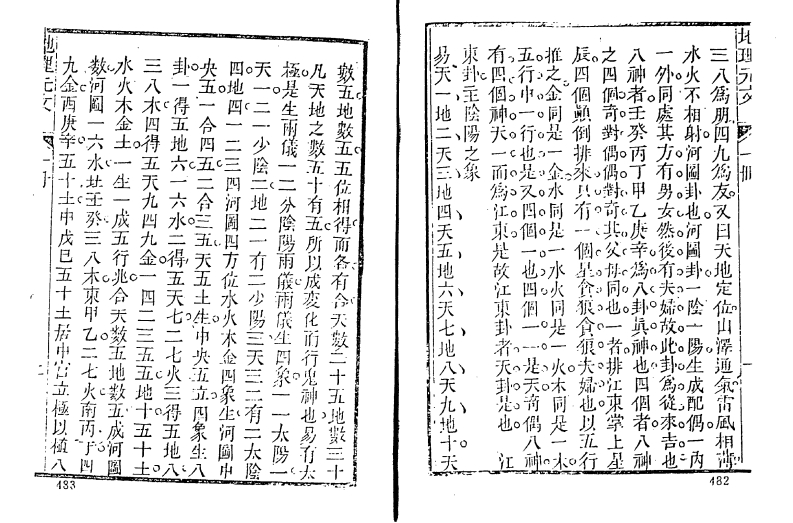 地理元文
三八爲朋四九爲友又曰天地定位山澤通氣雷風相薄
水火不相射河圖卦也河圖卦一陰一陽生成配偶一內
一外同處其方有男女然後有夫婦故此卦爲從來吉也
八神者壬癸丙丁甲乙庚辛爲八卦眞神也四個者八神
之四個奇對偶偶對奇其父母同也一者排江東掌上星
辰四個顚倒排來只有一個星貪狼貪狼夫婦也以五行
推之金同是一金水同是一水火同是一火木同是一木
五行中一行也是又四個一也四個一一是天奇偶八神
有四個神行天一而爲江東是故江東卦者天卦是也 江
東卦至陰陽之象
易天一地二天三地四天五地六天七地八天九地十天
482
數五地數五五位相得而各有合天數二十五地數三十
凡天地之數五十有五所以成變化而行鬼神也易有太
極是生兩儀一二分陰陽兩儀兩儀生四象一一太陽
天一二一少陰二地二一有二少陽三天三二有二太陰
四地四一二三四河圖四方位水火木金四象生河圖中
央五一合四五二合三五天五土生中央五立四象生八
卦一得五地六一六水二得五天七二七火三得五地八
三八木四得五天九四九金一四二三五五地十五十土
水火木金土一生一成五行兆合天數五地數五成河圖
數河圖一六水北壬癸三八木東甲乙二七火南丙丁四
九金西庚辛五十土中戊己五十土居中宮立極以植八
地理元文
483